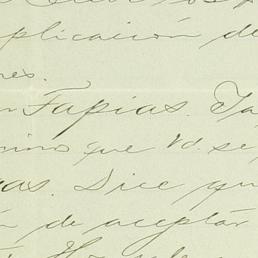 plicación de
res.
Tapias. Ta
mino que Vd. se
as. Dice qu
n de aceptar